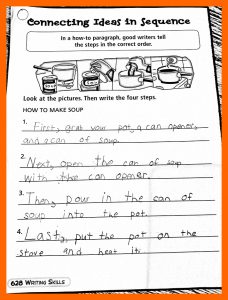 Connecting Ideas in Sequence
In a how-to paragraph, good writers tell
the steps in the correct order.
Look at the pictures. Then write the four steps.
HOW TO MAKE SOUP
1. First, grab your pot, a can opener,
and a can of soup.
2. Next, open the can of soup
with the can opener.
3. Then, pour in the can of
soup into the pot.
4. Last, put the pot on the
stove and heat it.
628 WRITING SKILLS